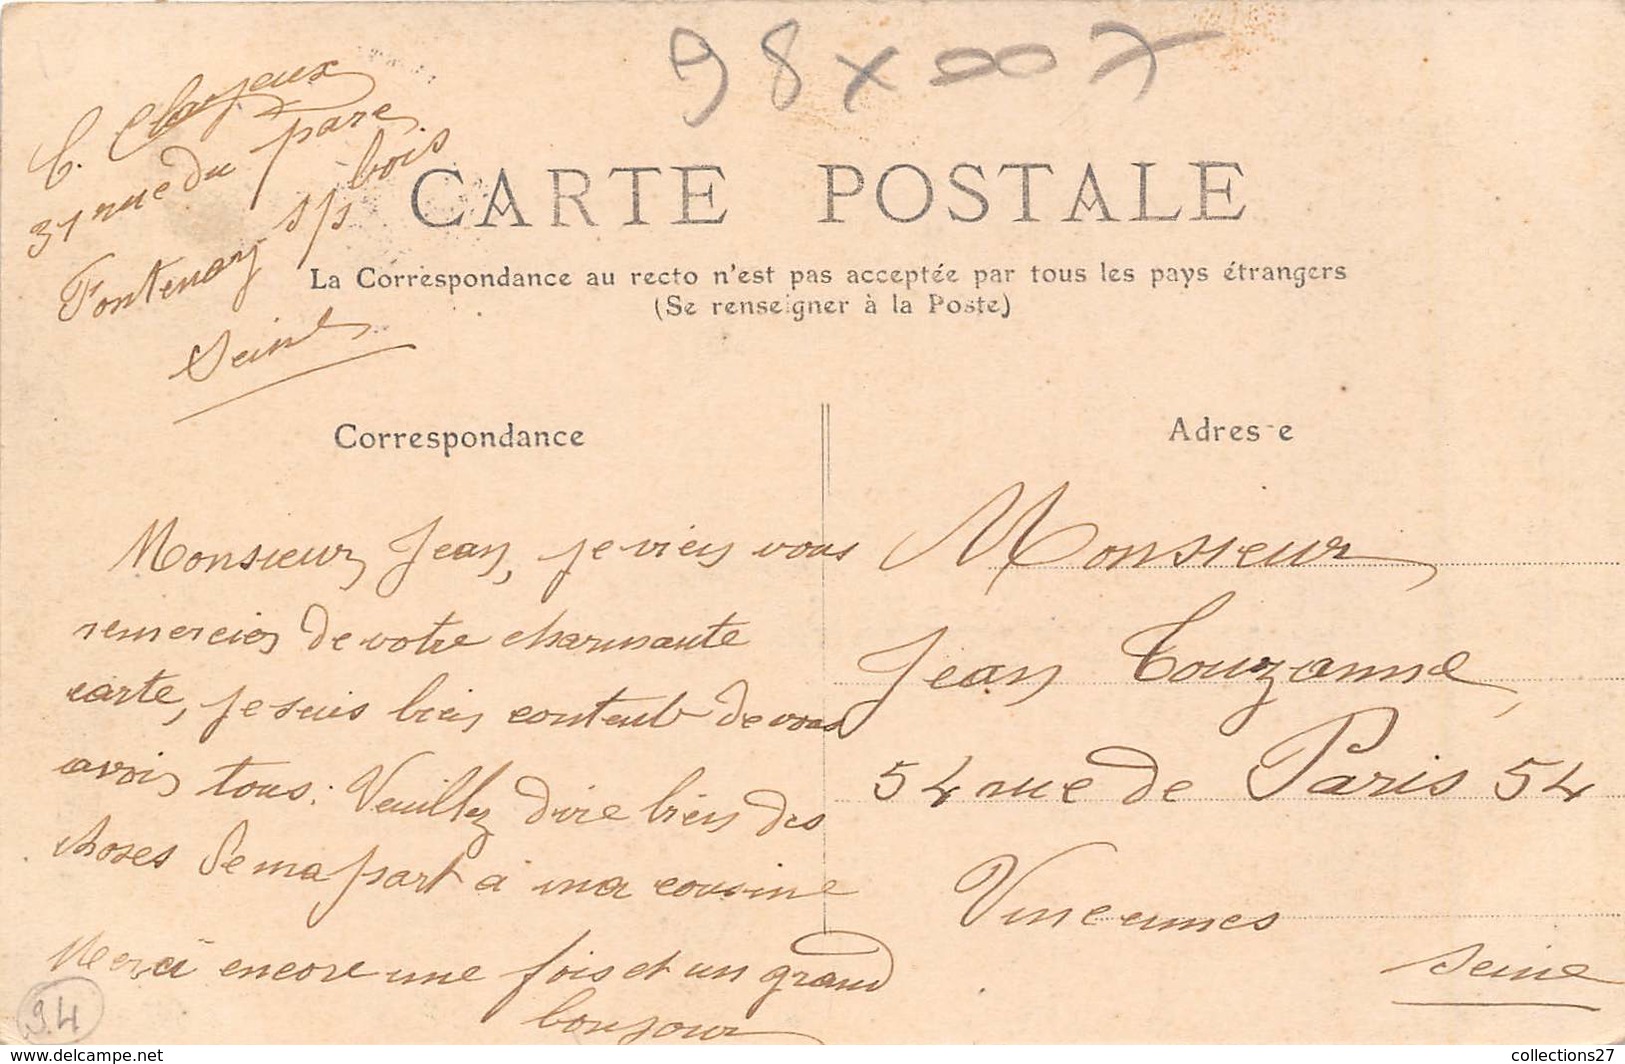 98 x 00 7
C. Clayeux
31 rue du parc
Fontenay s/s bois
Seine
CARTE POSTALE
La Correspondance au recto n'est pas acceptée par tous les pays étrangers
(Se renseigner à la Poste)
Correspondance
Monsieur Jean, je viens vous
remercier de votre charmante
carte, je suis bien content de vous
avoir tous. Veuillez dire bien des
choses de ma part à ma cousine
Merci encore une fois et un grand
bonjour
94
Adresse
Monsieur
Jean Touzanne,
54 rue de Paris 54
Vincennes
Seine
collections27
www.delcampe.net